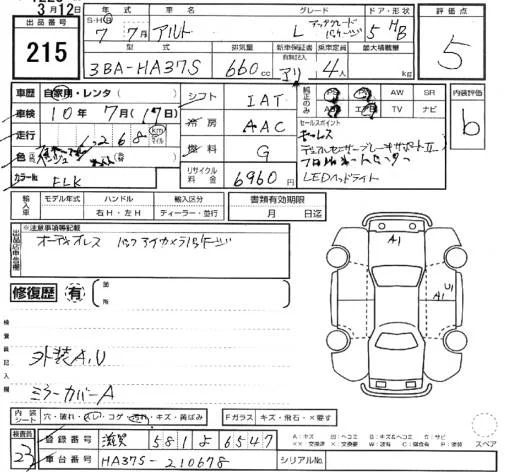 3月12日
215
年式 車名 グレード ドア・形状
7年 7月 アルト L アップグレードパッケージ 5 HB
型式 排気量 新車保証書 有無記入 乗車定員 最大積載量
3BA-HA37S 660cc アリ 4人 kg
評価点
5
車歴 自家用・レンタ( )
車検 10年 7月(17日)
走行 1,268 km マイル
色
カラーNo. FLK
シフト IAT
冷房 AAC
燃料 G
リサイクル料金 6960円
純正のみ PS PW AW SR
AB エアB TV ナビ
セールスポイント
キーレス
デュアルセンサーブレーキサポートII
LEDヘッドライト
内装評価
b
輸入車 モデル年式 ハンドル 輸入区分
年 右H・左H ディーラー・並行
書類有効期限
月 日迄
出品店申告欄
※注意事項等記載
オーディオレス バックアイカメラパッケージ
修復歴 有 箇所
検査員記入欄
外装A,U
ミラーカバーA
A1
U1
A1
内装シート 穴・破れ・スレ・コゲ・汚れ・キズ・黄ばみ
Fガラス キズ・飛石・×要す
検査員
23
登録番号 滋賀 581 よ 6547
車台番号 HA37S-210678
シリアルNo.
A:キズ U:ヘコミ B:キズ&ヘコミ W:波有 S:サビ C:腐食有 P:塗装
XX:交換済 X:要交換
スペア